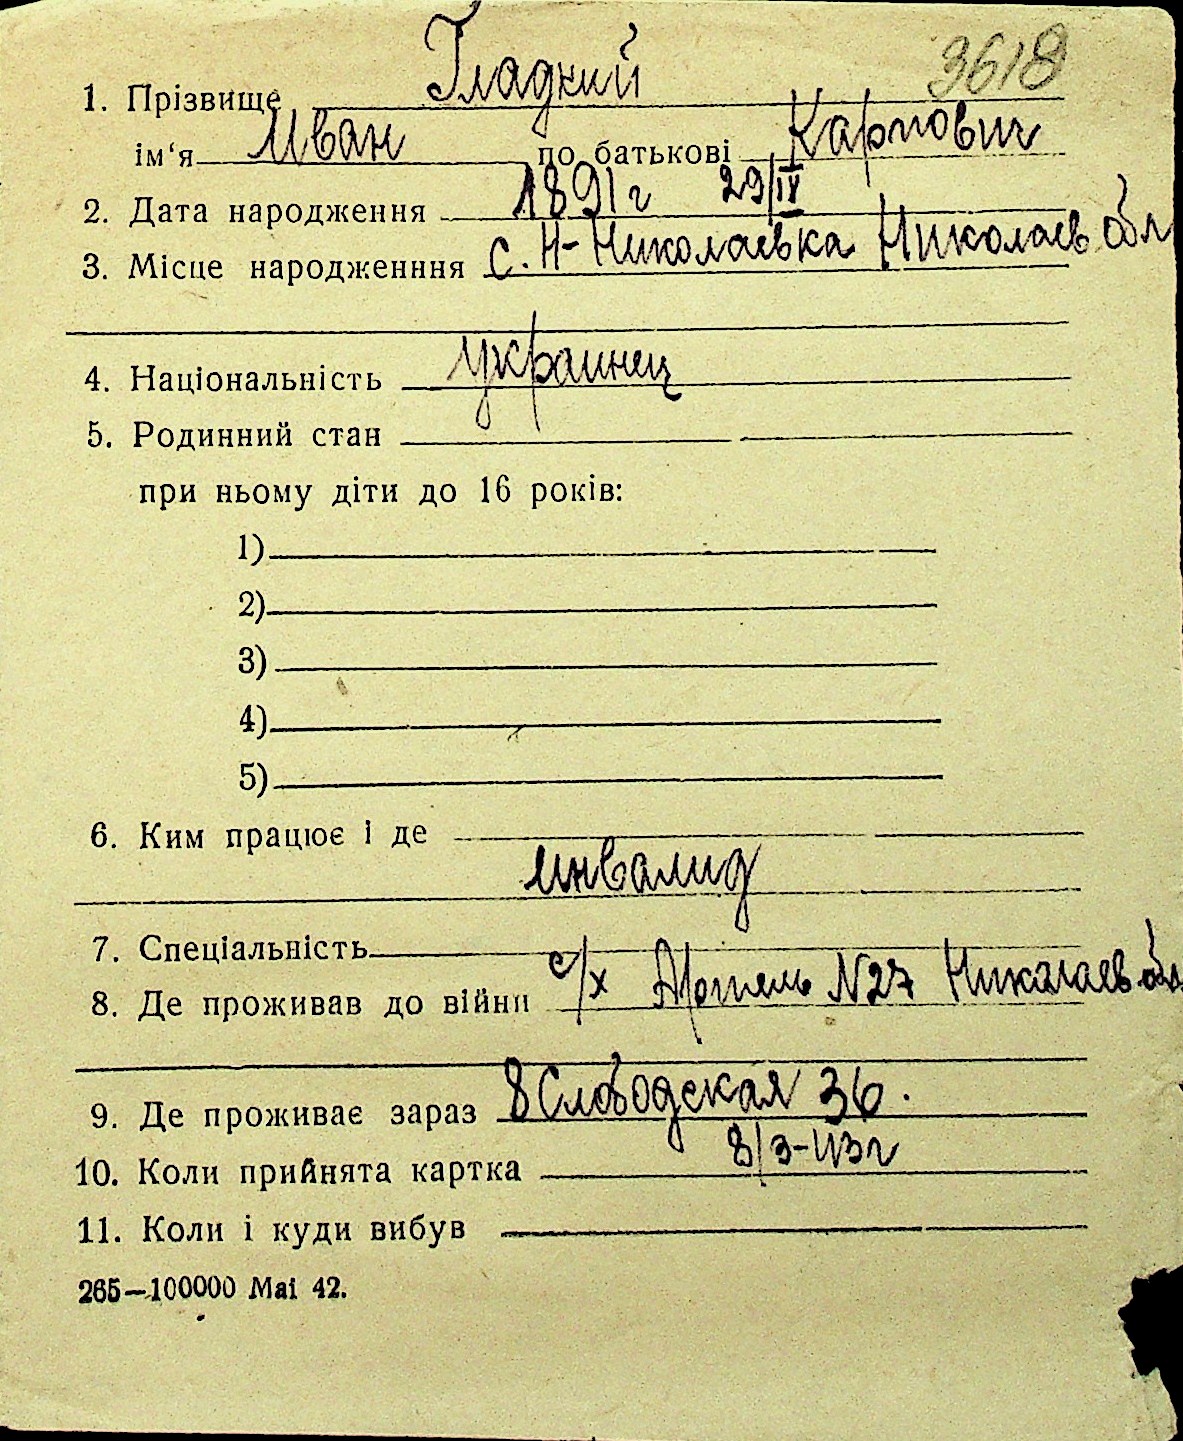 3618
1. Прізвище Гладкий
ім‘я Иван по батькові Карпович
2. Дата народження 1891 г 29/IV
3. Місце народженння с. Н-Николаевка Николаев обл
4. Національність украинец
5. Родинний стан
при ньому діти до 16 років:
1)
2)
3)
4)
5)
6. Ким працює і де
инвалид
7. Спеціальність
8. Де проживав до війни с/х Артель N27 Николаев обл
9. Де проживає зараз 8 Слободская 36.
10. Коли прийнята картка 8/3-43г
11. Коли і куди вибув
265—100000 Mai 42.